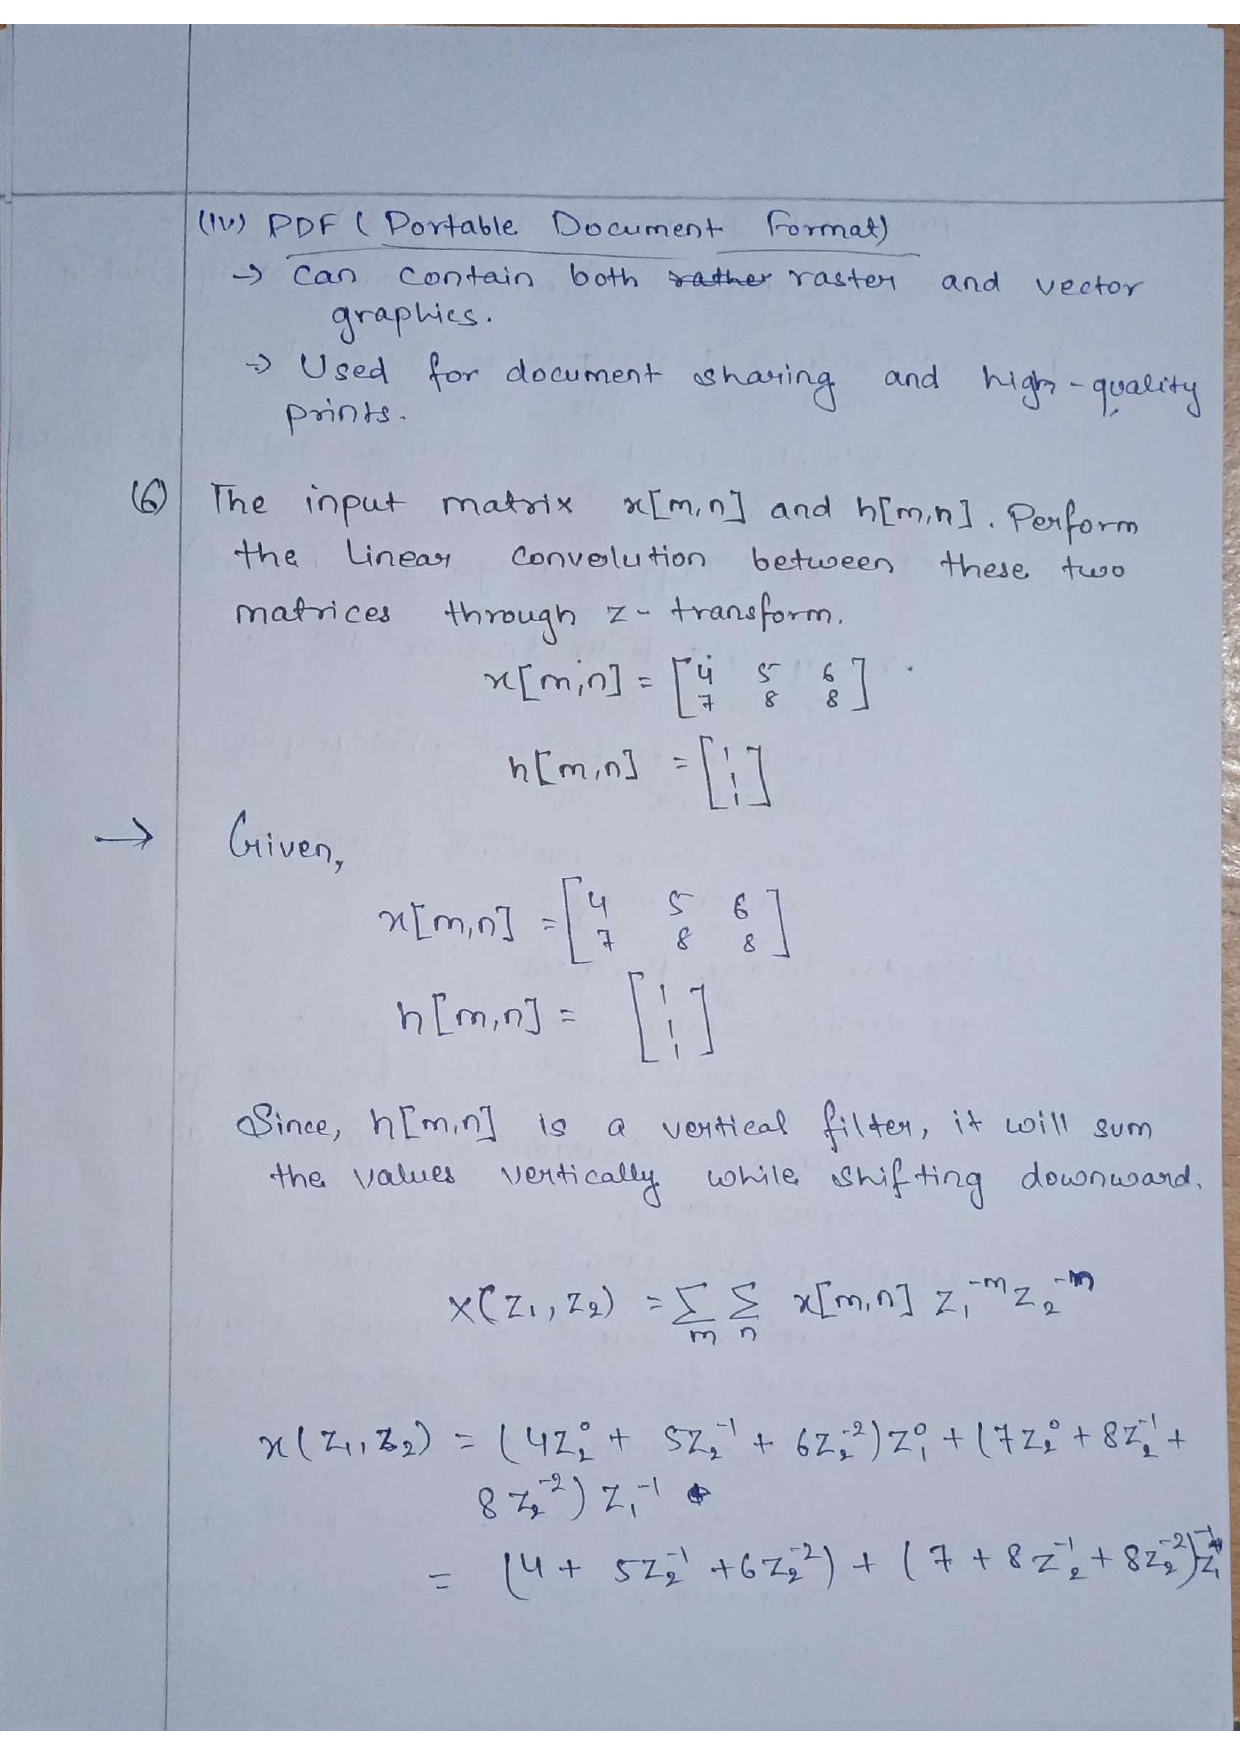 (iv) PDF (Portable Document Format)
→ can contain both rather raster and vector
graphics.
→ Used for document sharing and high-quality
prints.
(6) The input matrix x[m,n] and h[m,n]. Perform
the linear convolution between these two
matrices through z-transform.
x[m,n] = [4 5 6
7 8 8]
h[m,n] = [1
1
1]
→ Given,
x[m,n] = [4 5 6
7 8 8]
h[m,n] = [1
1
1]
Since, h[m,n] is a vertical filter, it will sum
the values vertically while shifting downward.
X(Z₁, Z₂) = Σₘ Σₙ x[m,n] Z₁⁻ᵐ Z₂⁻ⁿ
x(Z₁, Z₂) = (4Z₂⁰ + 5Z₂⁻¹ + 6Z₂⁻²)Z₁⁰ + (7Z₂⁰ + 8Z₂⁻¹ +
8Z₂⁻²)Z₁⁻¹
= (4 + 5Z₂⁻¹ + 6Z₂⁻²) + (7 + 8Z₂⁻¹ + 8Z₂⁻²)Z₁⁻¹